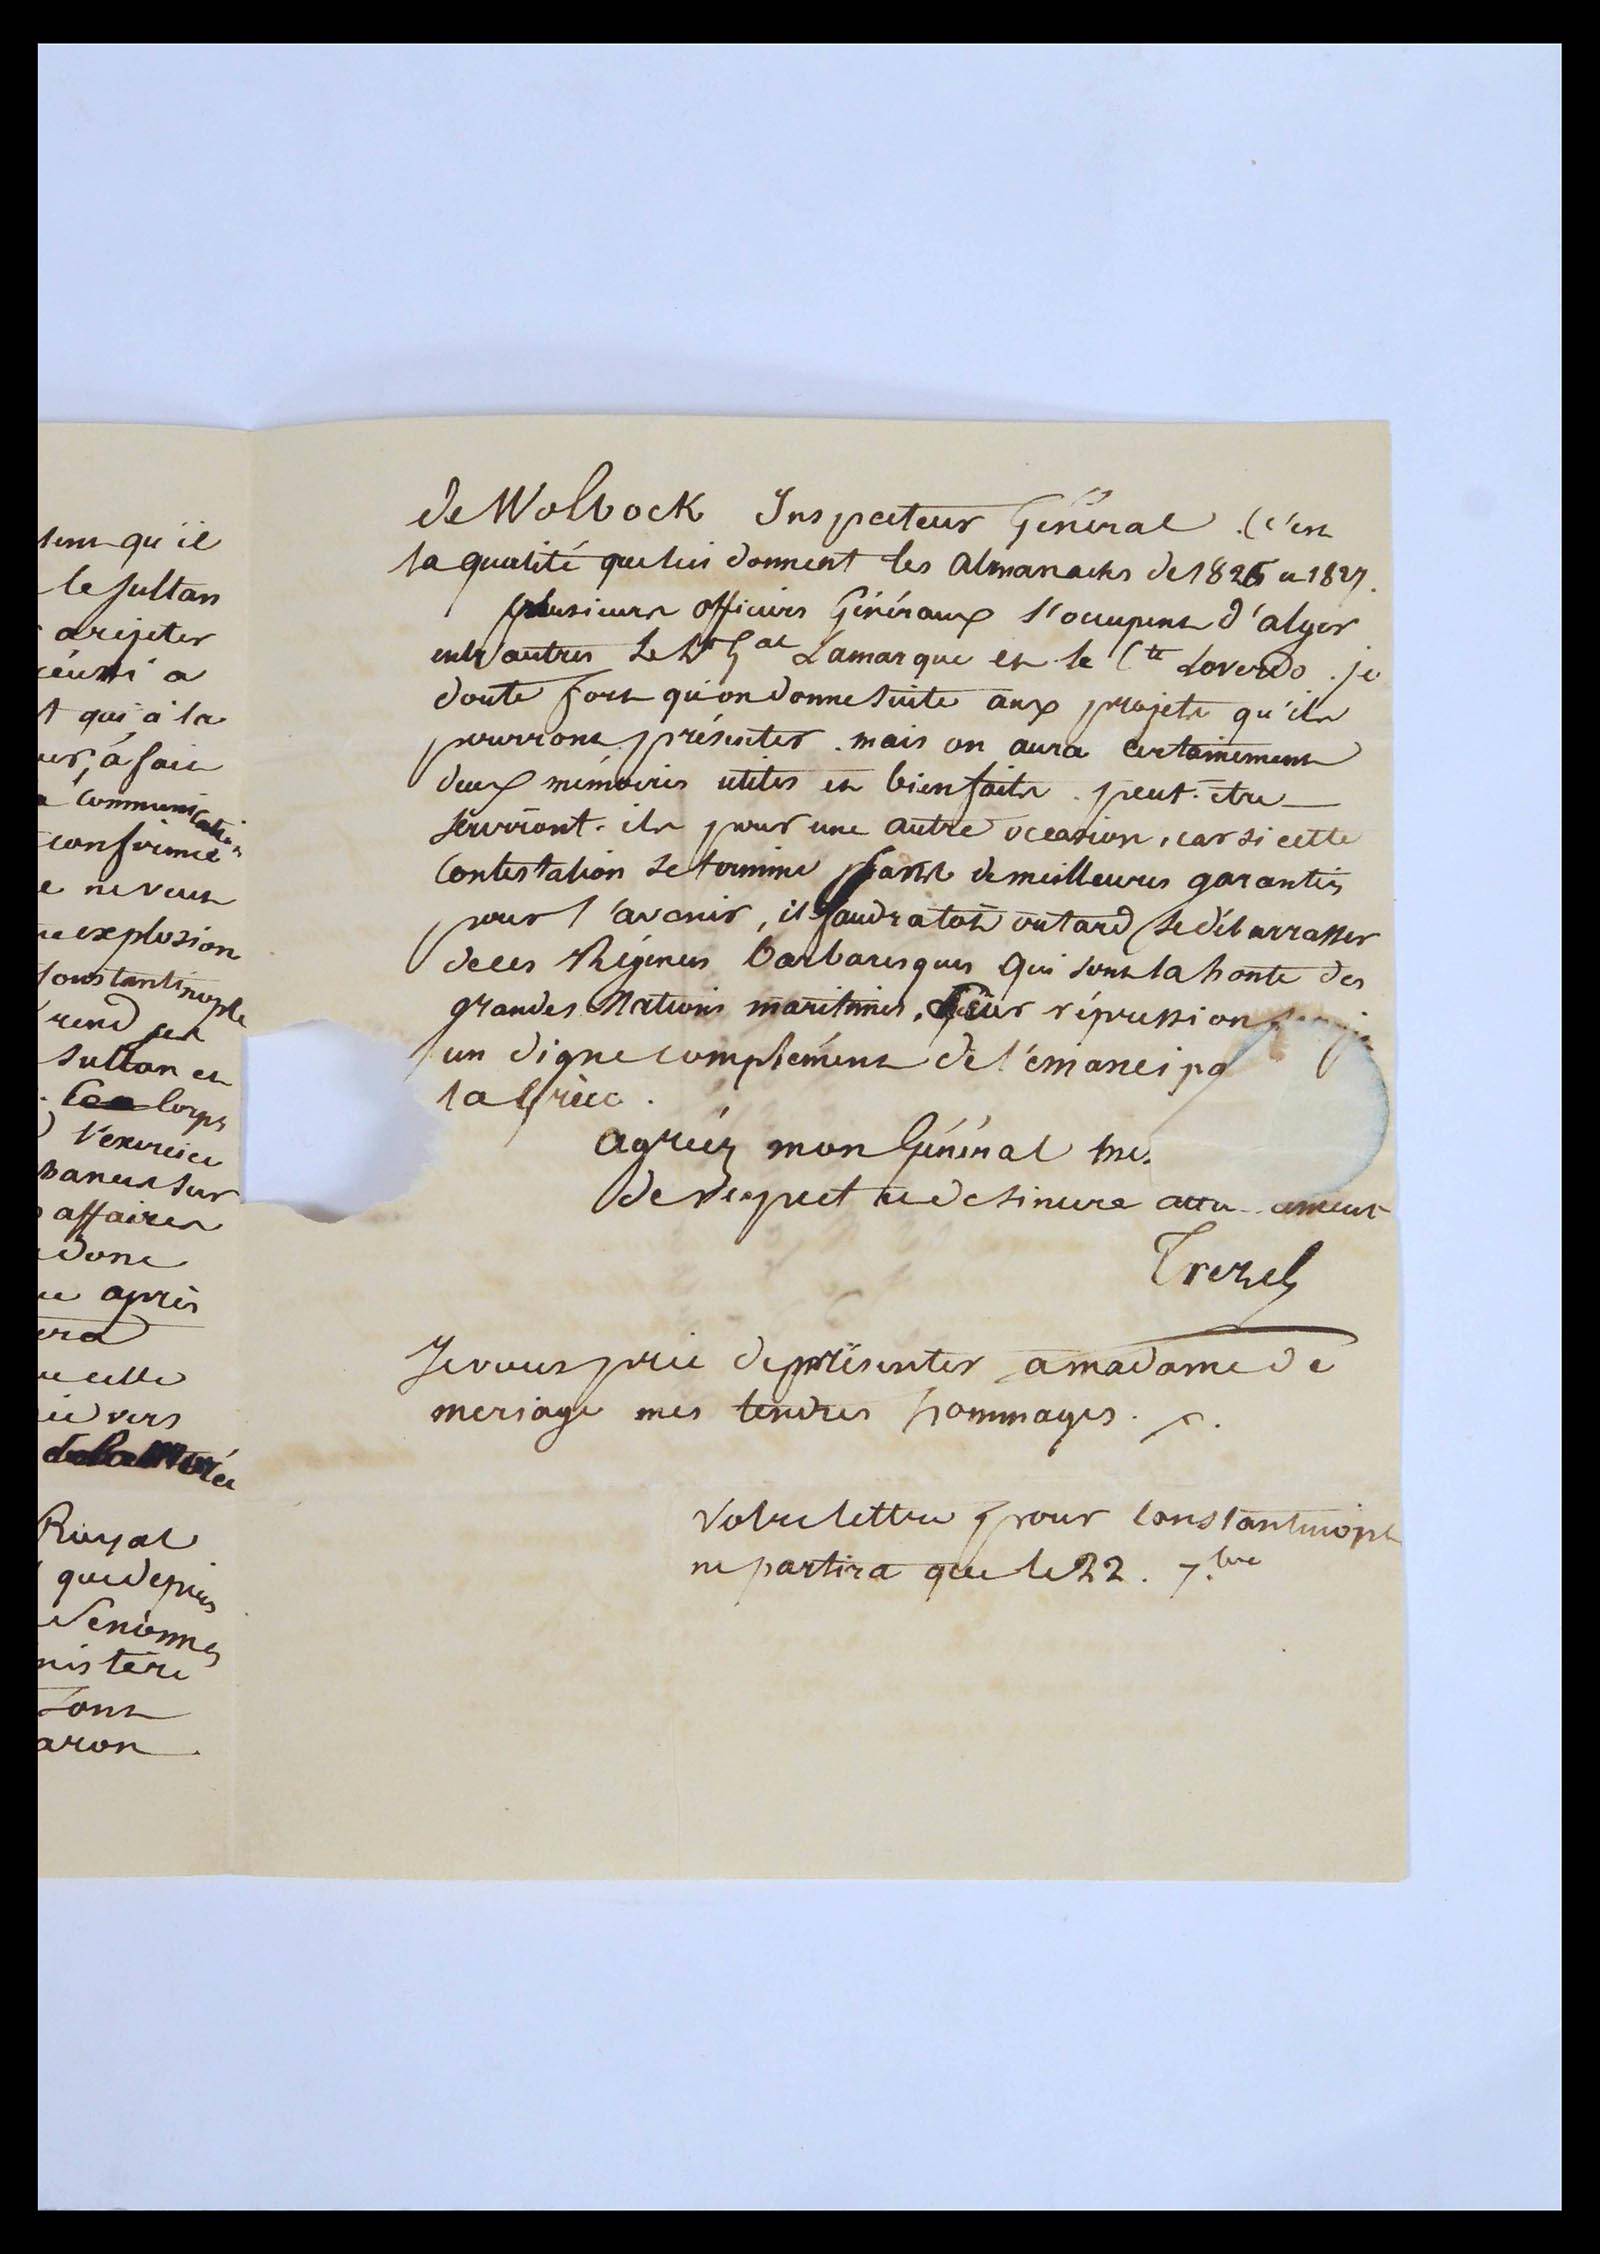 sent qu'il
le sultan
a rejeter
réussi a
t qui à la
à fair
communication
confirmé
e ne veut
explosion
Constantinople
rend
Sultan et
Corps
l'exercice
sur
affaires
donc
après
celle
vers
de la Morée
Royal
que depuis
nistere
font
aron
de Wolbock Inspecteur Général. (c'est
la qualité que lui donnent les Almanachs de 1826 et 1827.
plusieurs officiers Généraux s'occupent d'alger
entr'autres le Lt Gal Lamarque et le Cte Loverdo. je
doute fort qu'on donne suite aux projets qu'ils
pourront présenter. mais on aura certainement
deux mémoires utiles et bien faits. peut-être
serviront-ils pour une autre occasion, car si cette
contestation se termine sans de meilleures garanties
pour l'avenir, il faudra tôt ou tard se débarrasser
de ces Régences barbaresques qui sont la honte des
grandes Nations maritimes. Leur répression
un digne complément de l'émancipa
la Grèce.
agréez mon Général
de respect et de sincere ement
Trezel
Je vous prie de présenter a madame de
meriage mes tendres hommages.
Votre lettre pour Constantinople
ne partira que le 22. 7.bre